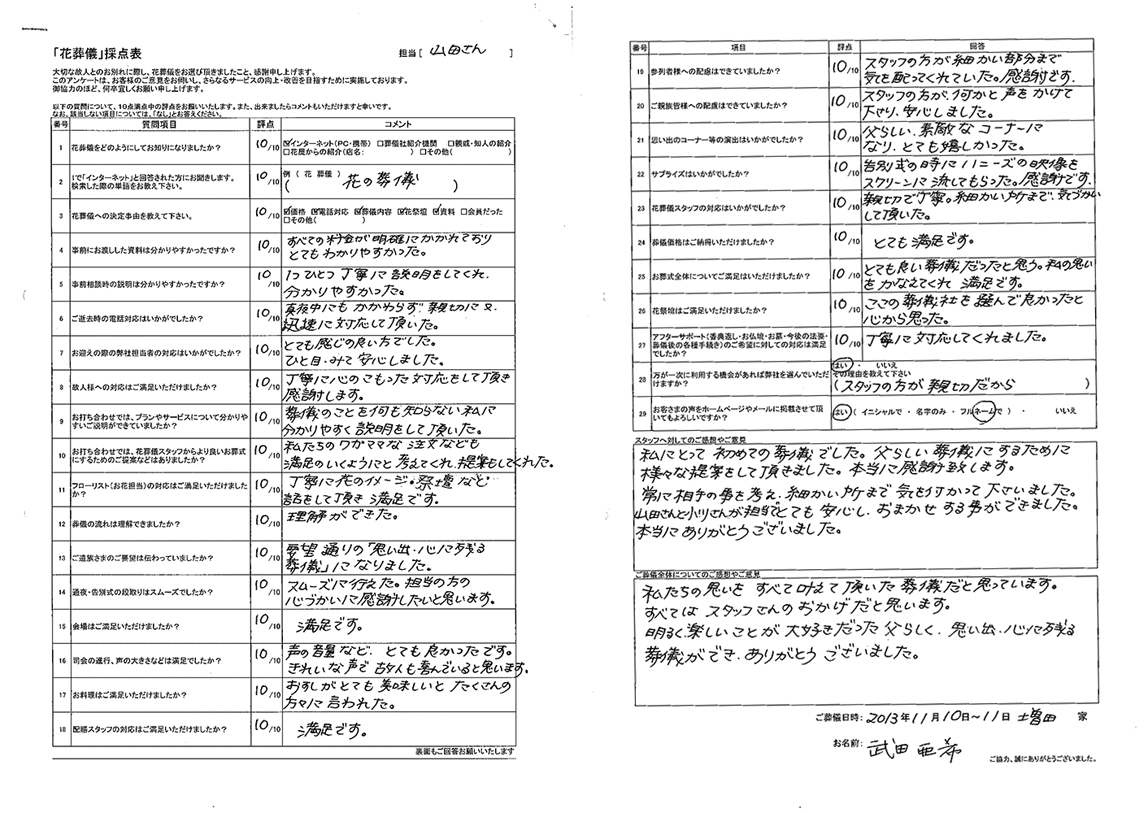 「花葬儀」採点表
担当 [ 山田さん ]
大切な故人とのお別れに際し、花葬儀をお選び頂きましたこと、感謝申し上げます。
このアンケートは、お客様のご意見をお伺いし、さらなるサービスの向上・改善を目指すために実施しております。
御協力のほど、何卒宜しくお願い申し上げます。
以下の質問について、10点満点中の評点をお願いいたします。また、出来ましたらコメントもいただけますと幸いです。
なお、該当しない項目については、「なし」とお答えください。
番号 質問項目 評点 コメント
1 花葬儀をどのようにしてお知りになりましたか? 10/10 ☑インターネット(PC・携帯) □葬儀社紹介機関 □親戚・知人の紹介
□花屋からの紹介(店名: ) □その他( )
2 1で「インターネット」と回答された方にお聞きします。
検索した際の単語をお教え下さい。 10/10 例 ( 花 葬儀 )
( 花の葬儀 )
3 花葬儀への決定事由を教えて下さい。 10/10 ☑価格 ☑電話対応 ☑葬儀内容 ☑花祭壇 ☑資料 □会員だった
□その他( )
4 事前にお渡しした資料は分かりやすかったですか? 10/10 すべての料金が明確にかかれており
とてもわかりやすかった。
5 事前相談時の説明は分かりやすかったですか? 10/10 1つひとつ丁寧に説明をしてくれ、
分かりやすかった。
6 ご逝去時の電話対応はいかがでしたか? 10/10 真夜中にもかかわらず、親切に又、
迅速に対応して頂いた。
7 お迎えの際の弊社担当者の対応はいかがでしたか? 10/10 とても感じの良い方でした。
ひと目みて安心しました。
8 故人様への対応はご満足いただけましたか? 10/10 丁寧に心のこもった対応をして頂き
感謝します。
9 お打ち合わせでは、プランやサービスについて分かりや
すいご説明ができていましたか? 10/10 葬儀のことを何も知らない私に
分かりやすく説明をして頂いた。
10 お打ち合わせでは、花葬儀スタッフからより良いお葬式
にするためのご提案などはありましたか? 10/10 私たちのワガママな注文なども
満足のいくようにと考えてくれ、提案もしてくれた。
11 フローリスト(お花担当)の対応はご満足いただけました
か? 10/10 丁寧に花のイメージ・祭壇など
話をして頂き満足です。
12 葬儀の流れは理解できましたか? 10/10 理解ができた。
13 ご遺族さまのご要望は伝わっていましたか? 10/10 要望通りの「思い出・心に残る
葬儀」になりました。
14 通夜・告別式の段取りはスムーズでしたか? 10/10 スムーズに行えた。担当の方の
心づかいに感謝したいと思います。
15 会場はご満足いただけましたか? 10/10 満足です。
16 司会の進行、声の大きさなどは満足でしたか? 10/10 声の音量など、とても良かったです。
きれいな声で故人も喜んでいると思います。
17 お料理はご満足いただけましたか? 10/10 おすしがとても美味しいとたくさんの
方々に言われた。
18 配膳スタッフの対応はご満足いただけましたか? 10/10 満足です。
裏面もご回答お願いいたします
番号 項目 評点 回答
19 参列者様への配慮はできていましたか? 10/10 スタッフの方が細かい部分まで
気を配ってくれていた。感謝です。
20 ご親族皆様への配慮はできていましたか? 10/10 スタッフの方が、何かと声をかけて
下さり、安心しました。
21 思い出のコーナー等の演出はいかがでしたか? 10/10 父らしい、素敵なコーナーに
なり、とても嬉しかった。
22 サプライズはいかがでしたか? 10/10 告別式の時にハニーズの映像を
スクリーンに流してもらった。感謝です。
23 花葬儀スタッフの対応はいかがでしたか? 10/10 親切で丁寧。細かい所まで、気づかい
して頂いた。
24 葬儀価格はご納得いただけましたか? 10/10 とても満足です。
25 お葬式全体についてご満足はいただけましたか? 10/10 とても良い葬儀だったと思う。私の思い
をかなえてくれ 満足です。
26 花祭壇はご満足いただけましたか? 10/10 ここの葬儀社を選んで良かったと
心から思った。
27 アフターサポート(香典返し・お仏壇・お墓・今後の法要・
葬儀後の各種手続き)のご希望に対しての対応は満足
でしたか? 10/10 丁寧に対応してくれました。
28 万が一次に利用する機会があれば弊社を選んでいただ
けますか? はい ・ いいえ
その理由を教えて下さい
( スタッフの方が親切だから )
29 お客さまの声をホームページやメールに掲載させて頂
いてもよろしいですか? はい ( イニシャルで ・ 名字のみ ・ フルネームで ) ・ いいえ
スタッフへ対してのご感想やご意見
私にとって初めての葬儀でした。父らしい葬儀にするために
様々な提案をして頂きました。本当に感謝致します。
常に相手の事を考え、細かい所まで気を付かって下さいました。
山田さんと小川さんが担当でとても安心し、おまかせする事ができました。
本当にありがとうございました。
ご葬儀全体についてのご感想やご意見
私たちの思いをすべて叶えて頂いた葬儀だと思っています。
すべてはスタッフさんのおかげだと思います。
明るく、楽しいことが大好きだった父らしく、思い出・心に残る
葬儀ができ、ありがとうございました。
ご葬儀日時: 2013年11月10日~11日 増田 家
お名前: 武田 亜希
ご協力、誠にありがとうございました。